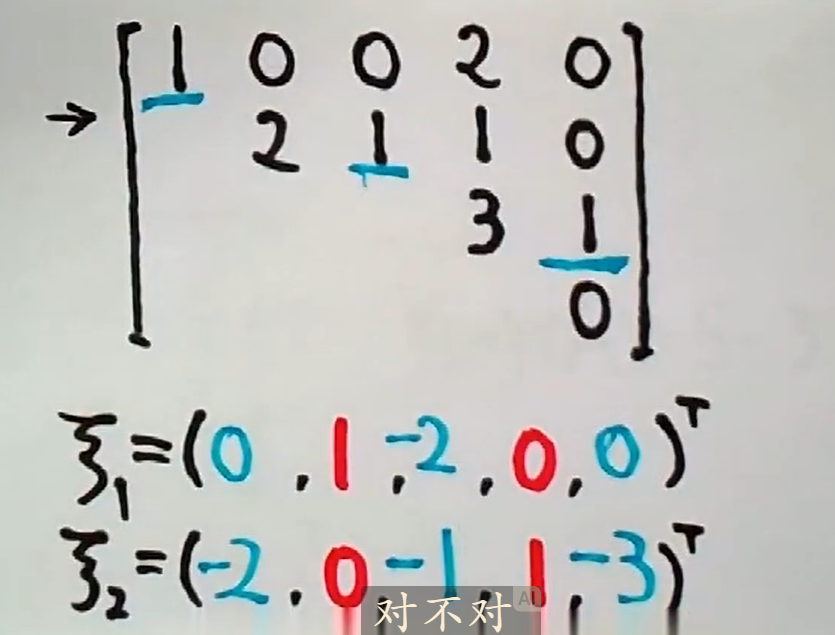 → [ 1 0 0 2 0
2 1 1 0
3 1
0 ]
ξ₁=(0,1,-2,0,0)ᵀ
ξ₂=(-2,0,-1,1,-3)ᵀ
对不对 AI